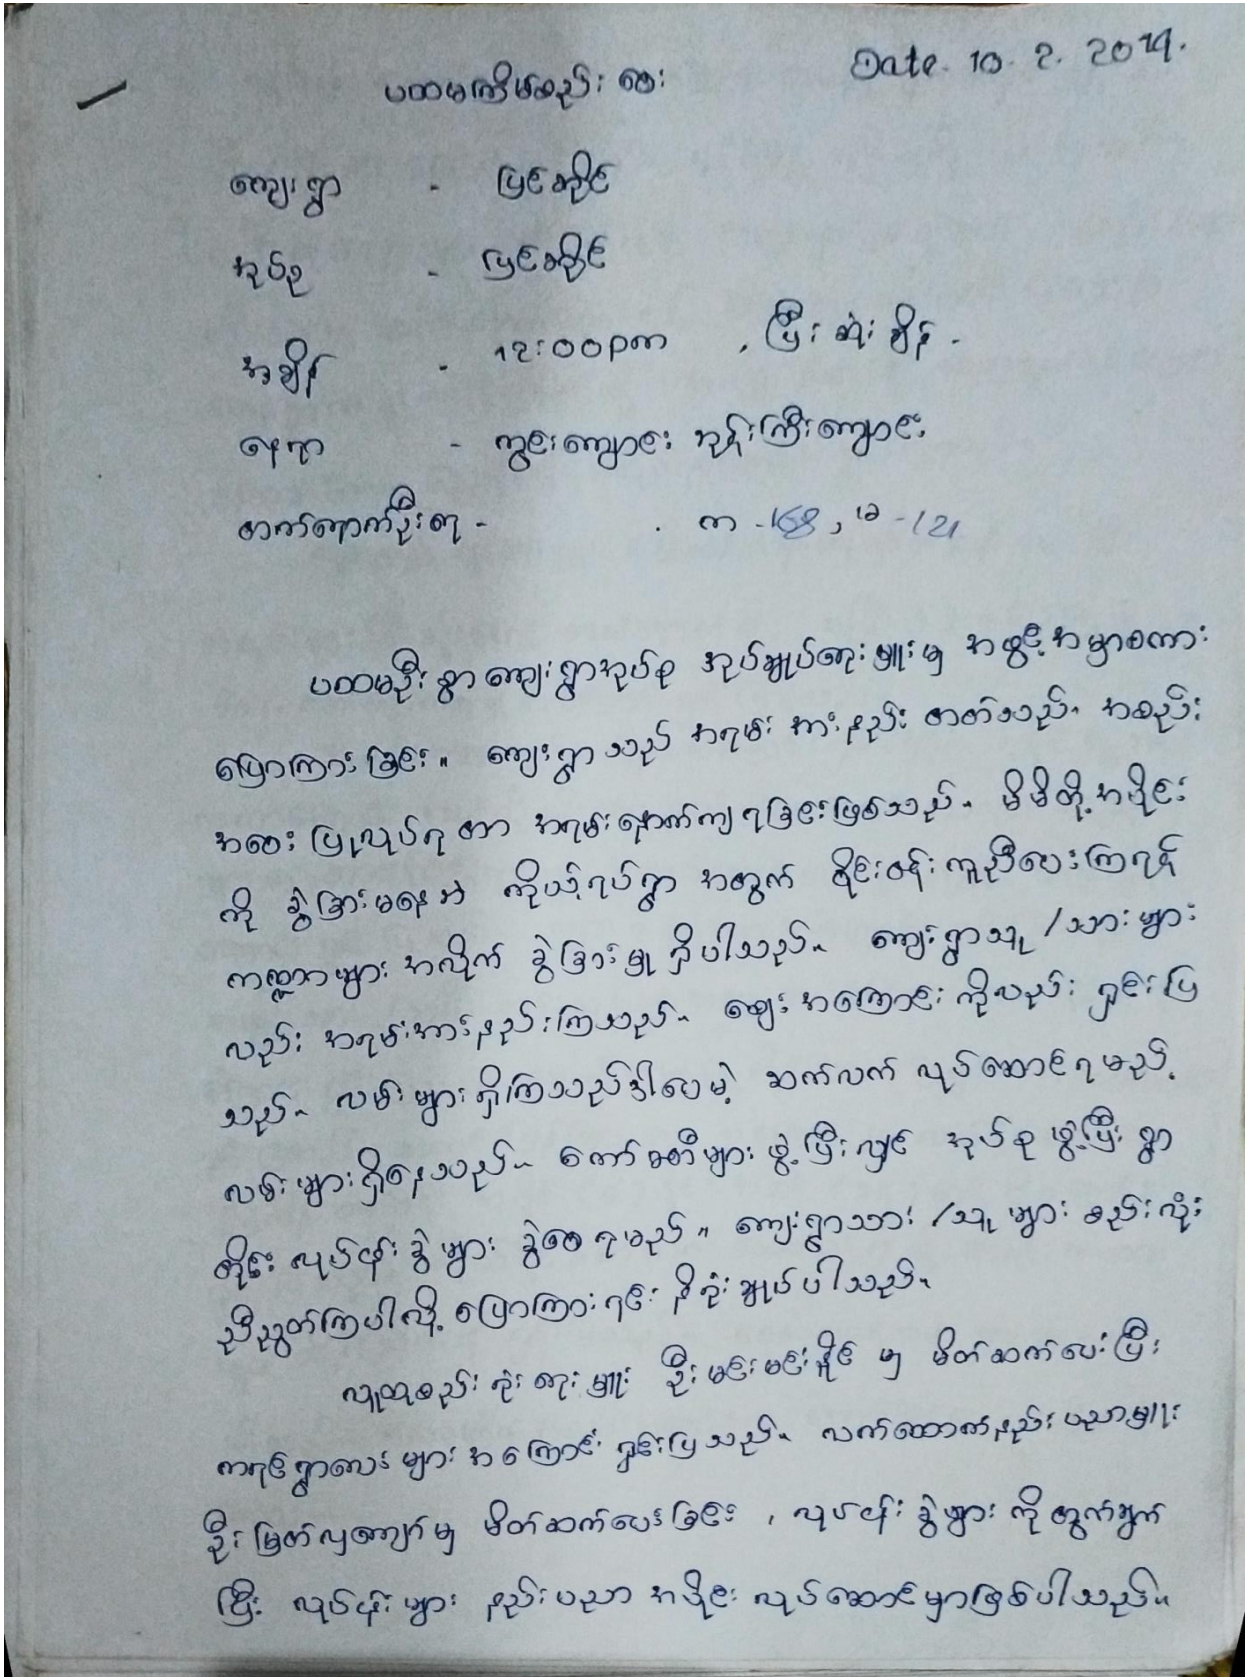 Date. 10. 2. 2019.
ပထမအကြိမ်စည်းဝေး
ကျေးရွာ - မြင်ဆိုင်
အုပ်စု - မြင်ဆိုင်
အချိန် - 12:00pm , ပြီးဆုံးချိန် -
နေရာ - ကွင်းကျောင်း ဘုန်းကြီးကျောင်း
တက်ရောက်ဦးရေ - . က - 168 , မ - 121
ပထမဦးစွာ ကျေးရွာအုပ်စု အုပ်ချုပ်ရေးမှူးမှ အဖွင့်အမှာစကား
ပြောကြားခြင်း။ ကျေးရွာသည် အရမ်းအားနည်းတတ်သည်။ အစည်း
အဝေး ပြုလုပ်ရတာ အရမ်းနောက်ကျရခြင်းဖြစ်သည်။ မိမိတို့အပိုင်း
ကို ခွဲခြားမနေဘဲ ကိုယ့်ရပ်ရွာအတွက် ဝိုင်းဝန်းကူညီပေးကြရန်
ကဏ္ဍများအလိုက် ခွဲခြားမှုရှိပါသည်။ ကျေးရွာသူ/သားများ
လည်း အရမ်းအားနည်းကြသည်။ ဈေးအကြောင်းကိုလည်း ရှင်းပြ
သည်။ လမ်းများရှိကြသည်ဒါပေမဲ့ ဆက်လက်လုပ်ဆောင်ရမည့်
လမ်းများရှိနေသည်။ ကော်မတီများဖွဲ့ပြီးလျှင် အုပ်စုဖွဲ့ပြီး ရွာ
တိုင်း လုပ်ငန်းခွဲများ ခွဲဝေရမည်။ ကျေးရွာသား/သူများ စည်းလုံး
ညီညွတ်ကြပါလို့ ပြောကြားရင်း နိဂုံးချုပ်ပါသည်။
လူထုစည်းရုံးရေးမှူး ဦးမင်းမင်းနိုင်မှ မိတ်ဆက်ပေးပြီး
ကရင်ရွာလေးများအကြောင်း ရှင်းပြသည်။ လက်ထောက်နည်းပညာမှူး
ဦးမြတ်လှကျော်မှ မိတ်ဆက်ပေးခြင်း , လုပ်ငန်းခွဲများကိုတွက်ချက်
ပြီး လုပ်ငန်းများ နည်းပညာအပိုင်း လုပ်ဆောင်မှာဖြစ်ပါသည်။